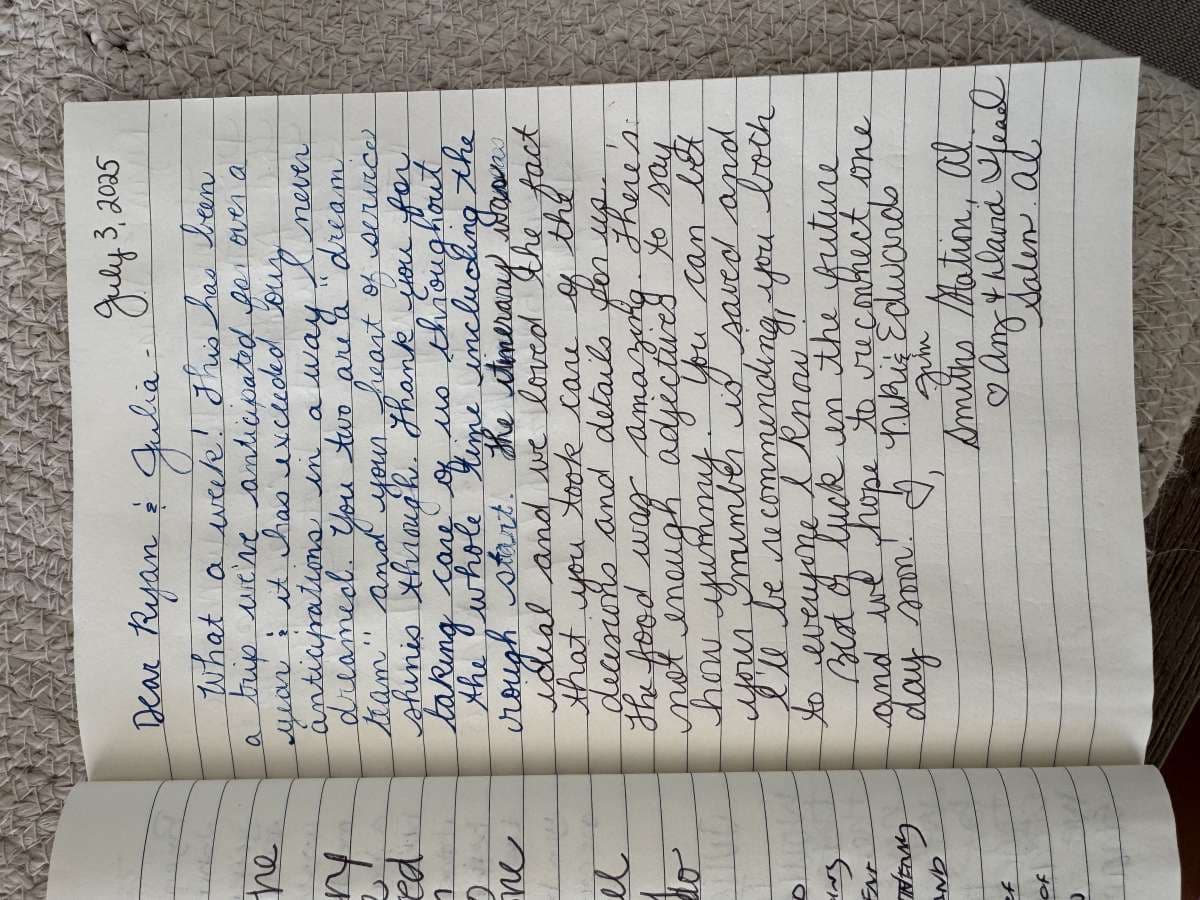 July 3, 2025
Dear Ryan & Julia -
What a week! This has been
a trip we've anticipated for over a
year & it has exceeded our
anticipations in a way I never
dreamed. You two are a "dream
team" and your heart of service
shines through. Thank you for
taking care of us throughout
the whole time including the
rough start. The itinerary was
ideal and we loved the fact
that you took care of the
decisions and details for us.
The food was amazing. There's
not enough adjectives to say
how yummy. You can bet
your number is saved and
I'll be recommending you both
to everyone I know.
Best of luck in the future
and we hope to reconnect one
day soon! ♡, Nikki & Edwards
Jim
Smiths Station, Al
♡ Amy & David
Salem, al
he
ny
eed
ne
ell
do
AND
OF
OF